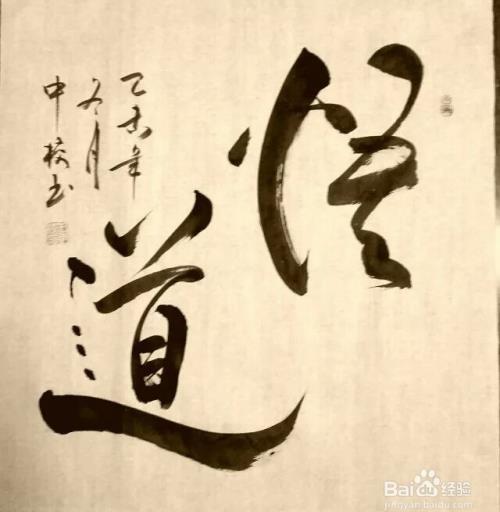 悟
道
乙未年
冬月
中校书
Bai 经验
jingyan.baidu.com